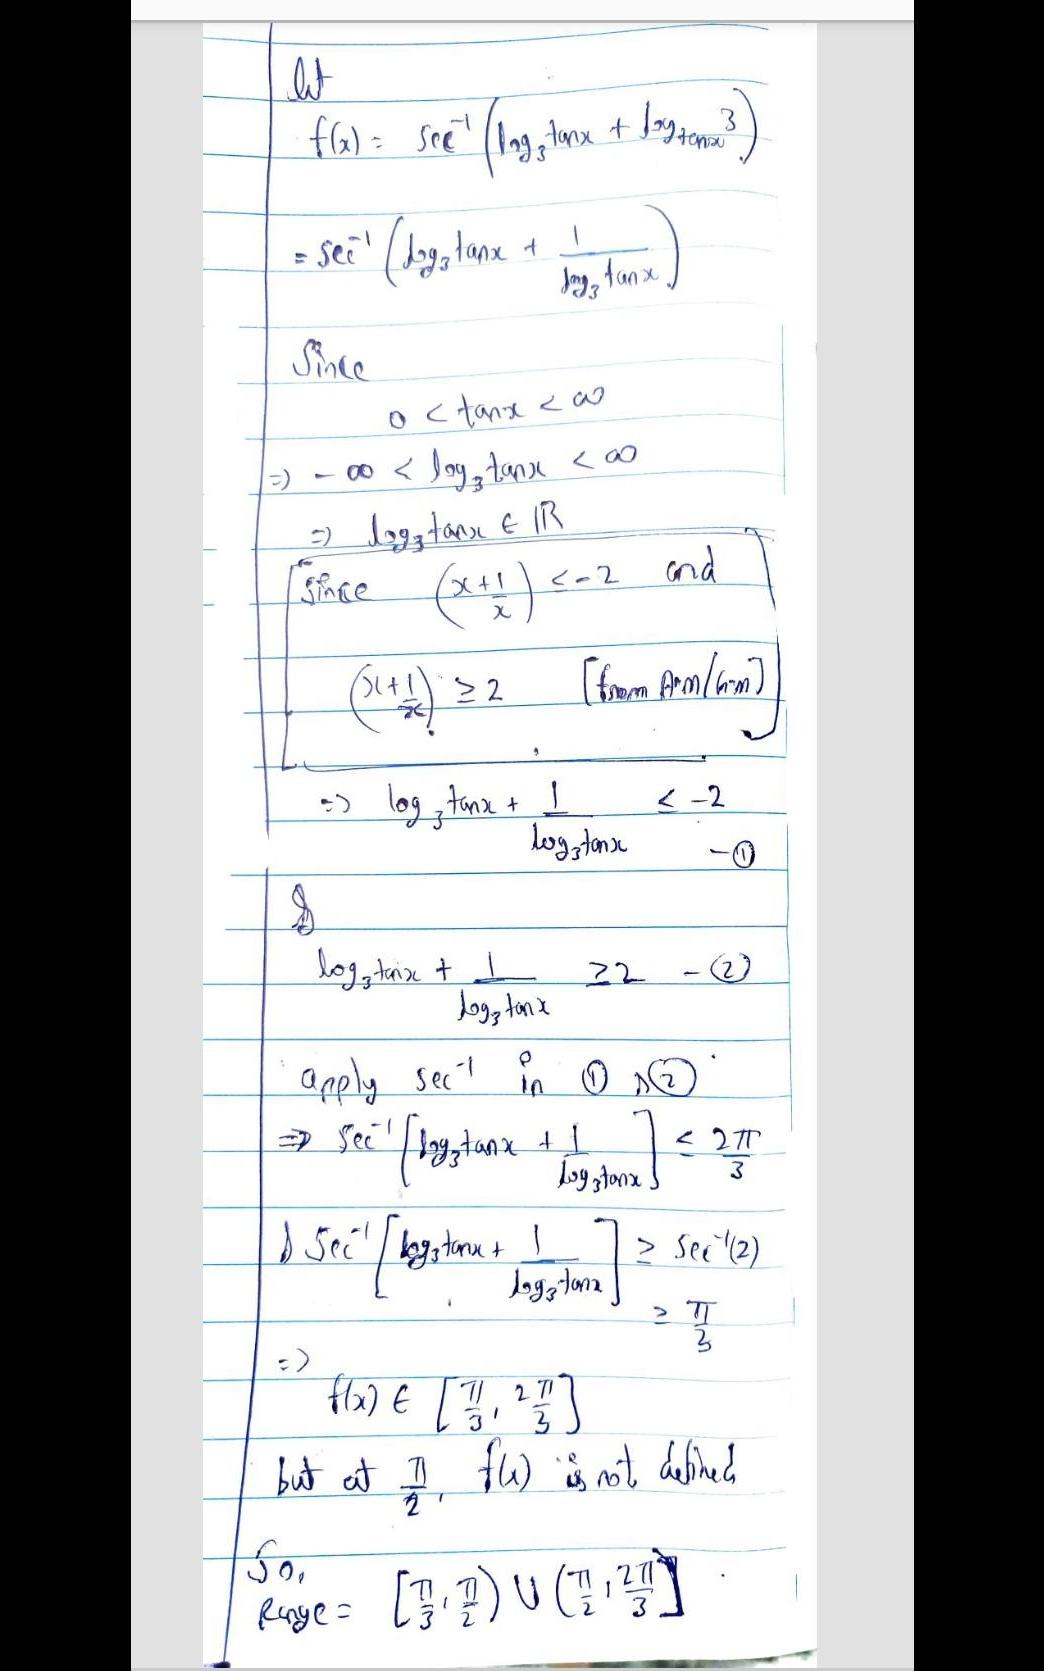 let
f(x) = sec⁻¹ (log₃ tanx + log_tanx 3)
= sec⁻¹ (log₃ tanx + 1/(log₃ tanx))
Since
0 < tanx < ∞
=> -∞ < log₃ tanx < ∞
=> log₃ tanx ∈ ℝ
[Since (x+1/x) ≤ -2 and
(x+1/x) ≥ 2 [from A.m/G.m]]
=> log₃ tanx + 1/(log₃ tanx) ≤ -2 -①
&
log₃ tanx + 1/(log₃ tanx) ≥ 2 -②
apply sec⁻¹ in ① & ②
=> sec⁻¹ [log₃ tanx + 1/(log₃ tanx)] ≤ 2π/3
& sec⁻¹ [log₃ tanx + 1/(log₃ tanx)] ≥ sec⁻¹(2)
≥ π/3
=>
f(x) ∈ [π/3, 2π/3]
but at π/2, f(x) is not defined
So,
Range = [π/3, π/2) ∪ (π/2, 2π/3]